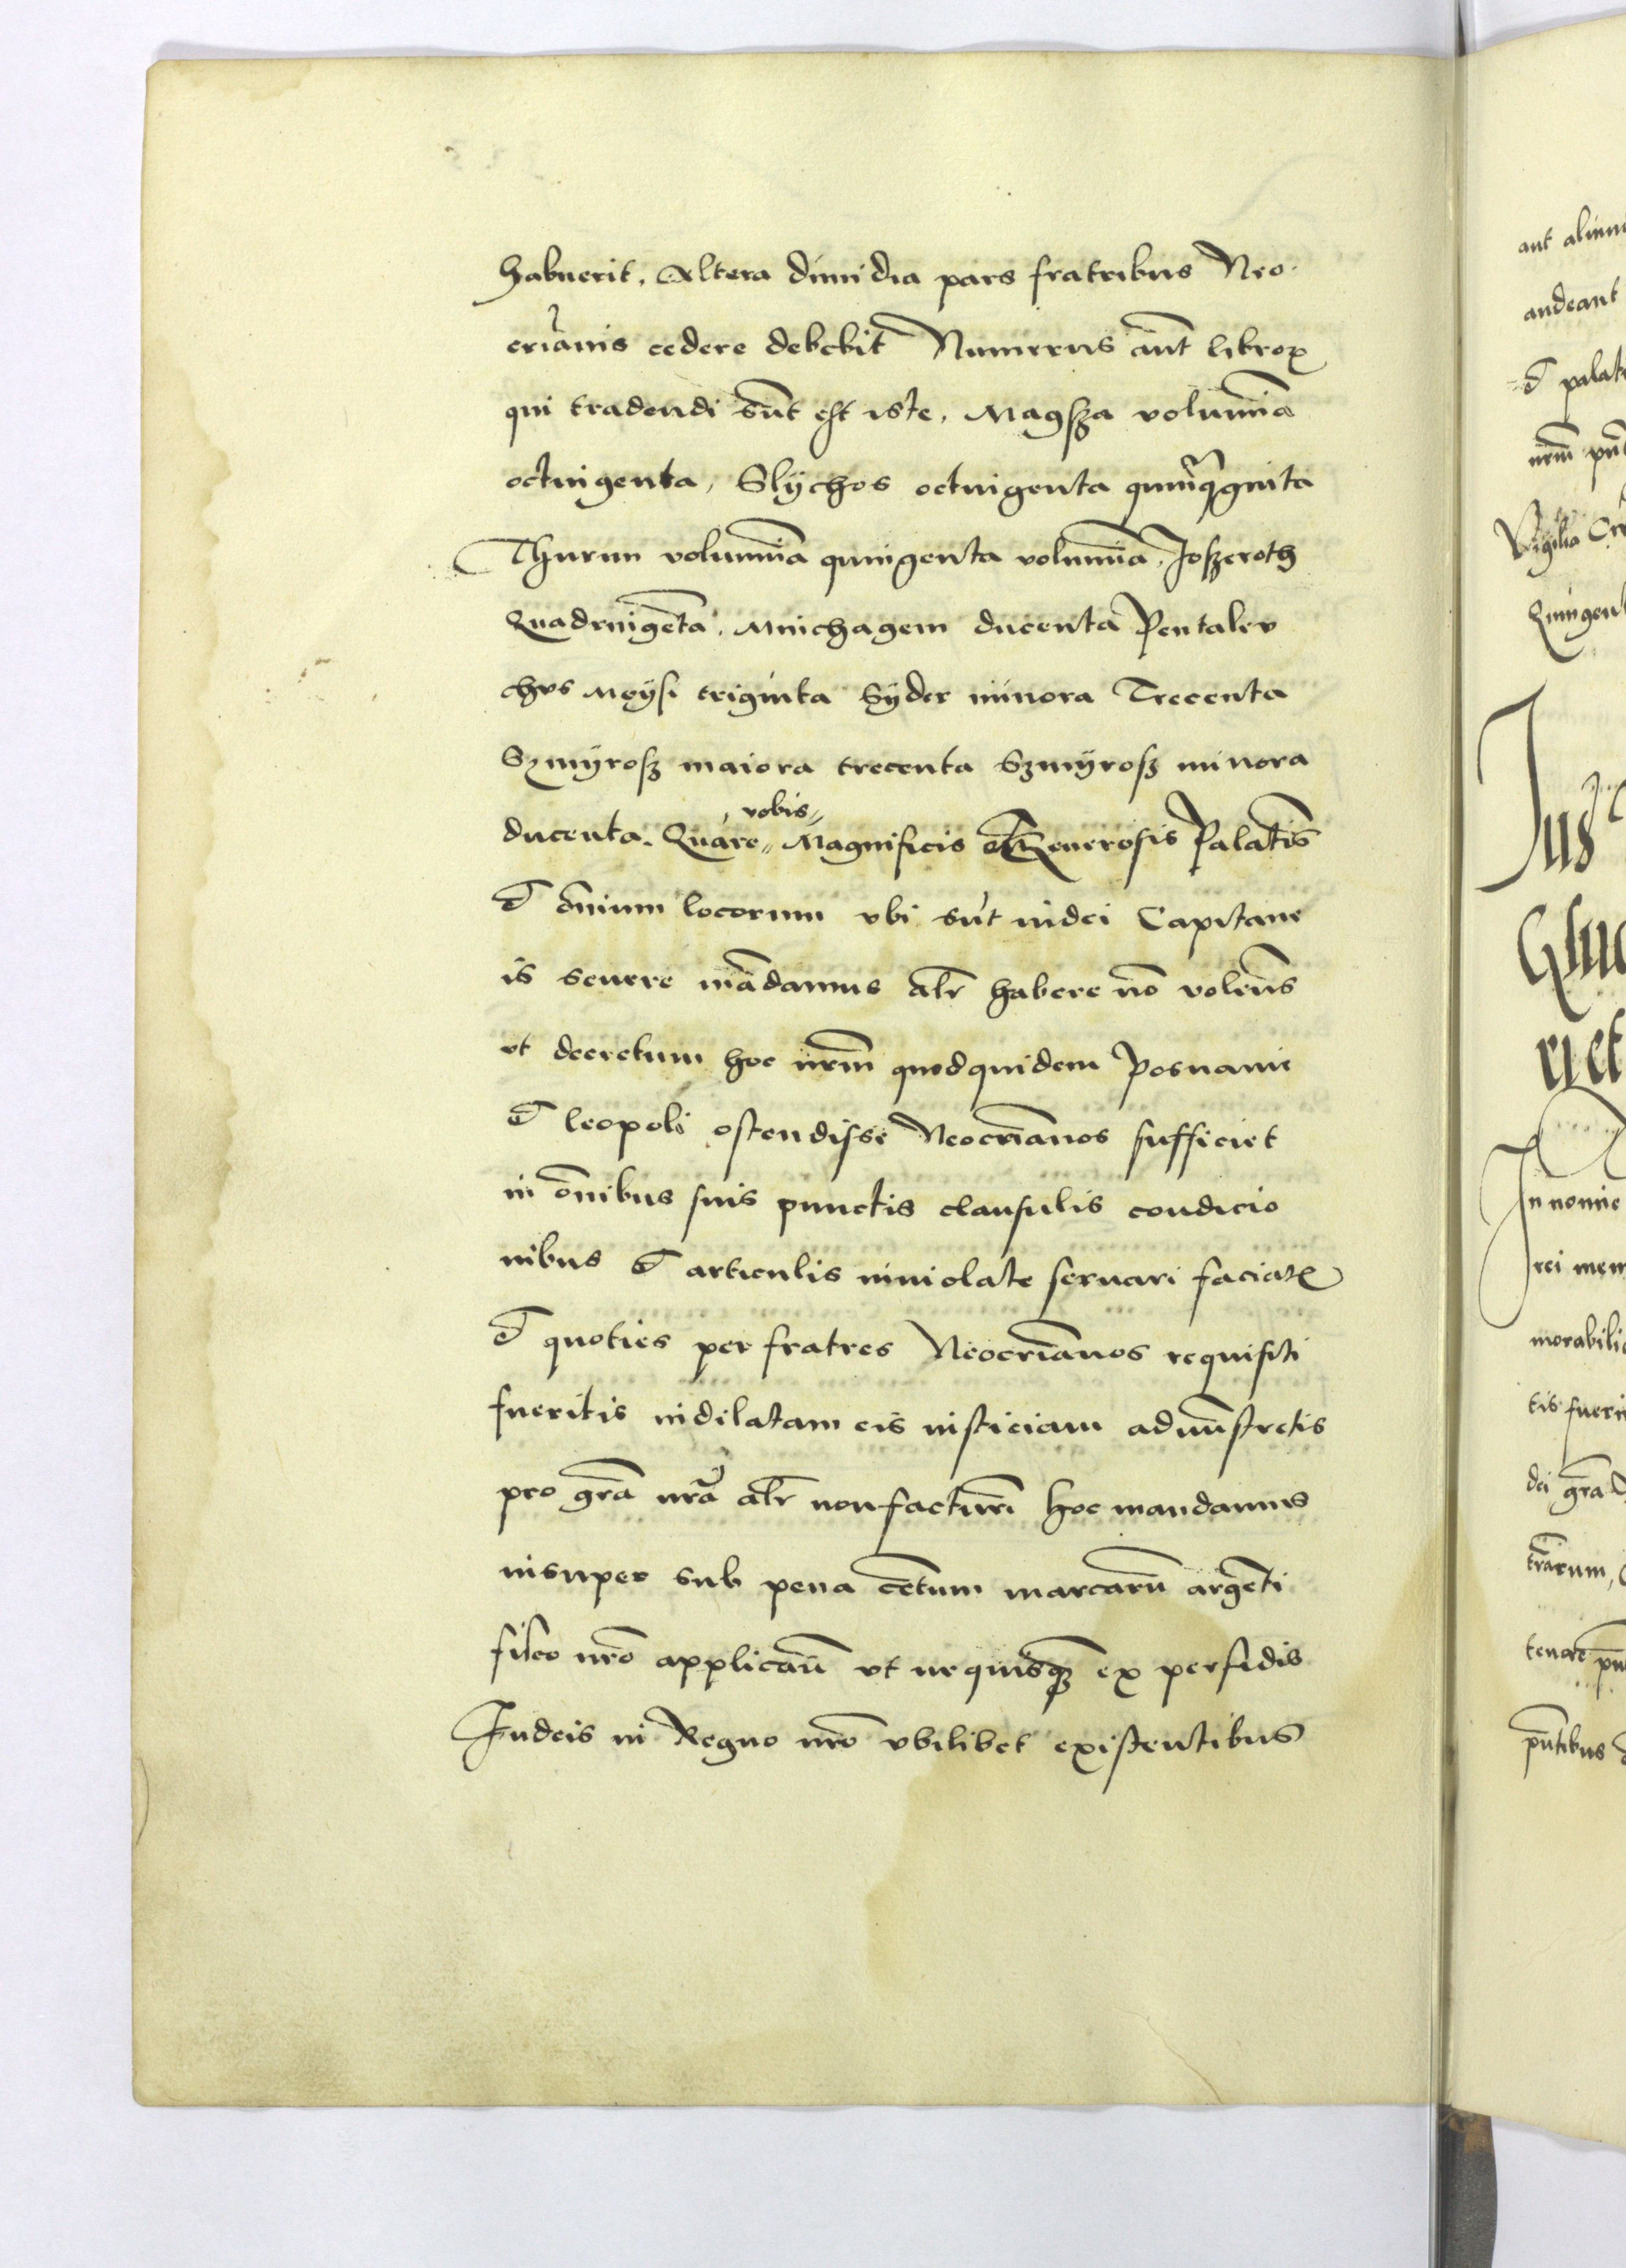 habuerit, Altera dimidia pars fratribus Neo-
cr̃ianis cedere debebit Numerus aut̃ libroꝝ
qui tradendi sũt est iste, Magsza volumĩa
octuigenta, Slÿchos octuigenta quinq̃ginta
Thurim volumĩa quingenta volumĩa, Joszeroth
Quadruigẽta, Mnichagem ducenta Pentaleu
chus Moÿsi triginta Sÿder minora Trecenta
Szmÿrosz maiora trecenta Szmÿrosz minora
ducenta. Quare vobis Magnificis et Generosis Palatĩs
et õnium locorum vbi sũt iudei Capitane
is seuere mãdamus alr̃ habere nõ volẽtes
vt decretum hoc nr̃m quodquidem Posnanie
et leopoli ostendisse Neocr̃ianos sufficiet
in õnibus suis punctis clausulis condicio
nibus et articulis inuiolate seruari faciatꝭ
et quoties per fratres Neocr̃ianos requisiti
fueritis indilatam eis iusticiam admĩstretis
pro gr̃a nr̃a alr̃ non facturi Hoc mandamus
insuper sub pena cẽtum marcarũ argẽti
fisco nr̃o applicãd̃ vt ne quisq̃ꝫ ex perfidis
Judeis in Regno nr̃o vbilibet existentibus
aut
audeant
et palat
nr̃m
Vigilia
Quingent
Jus
riet
In nomine
rei mem
morabili
tis fueri
dei gr̃a
tr̃arum,
tenore
pñtibus